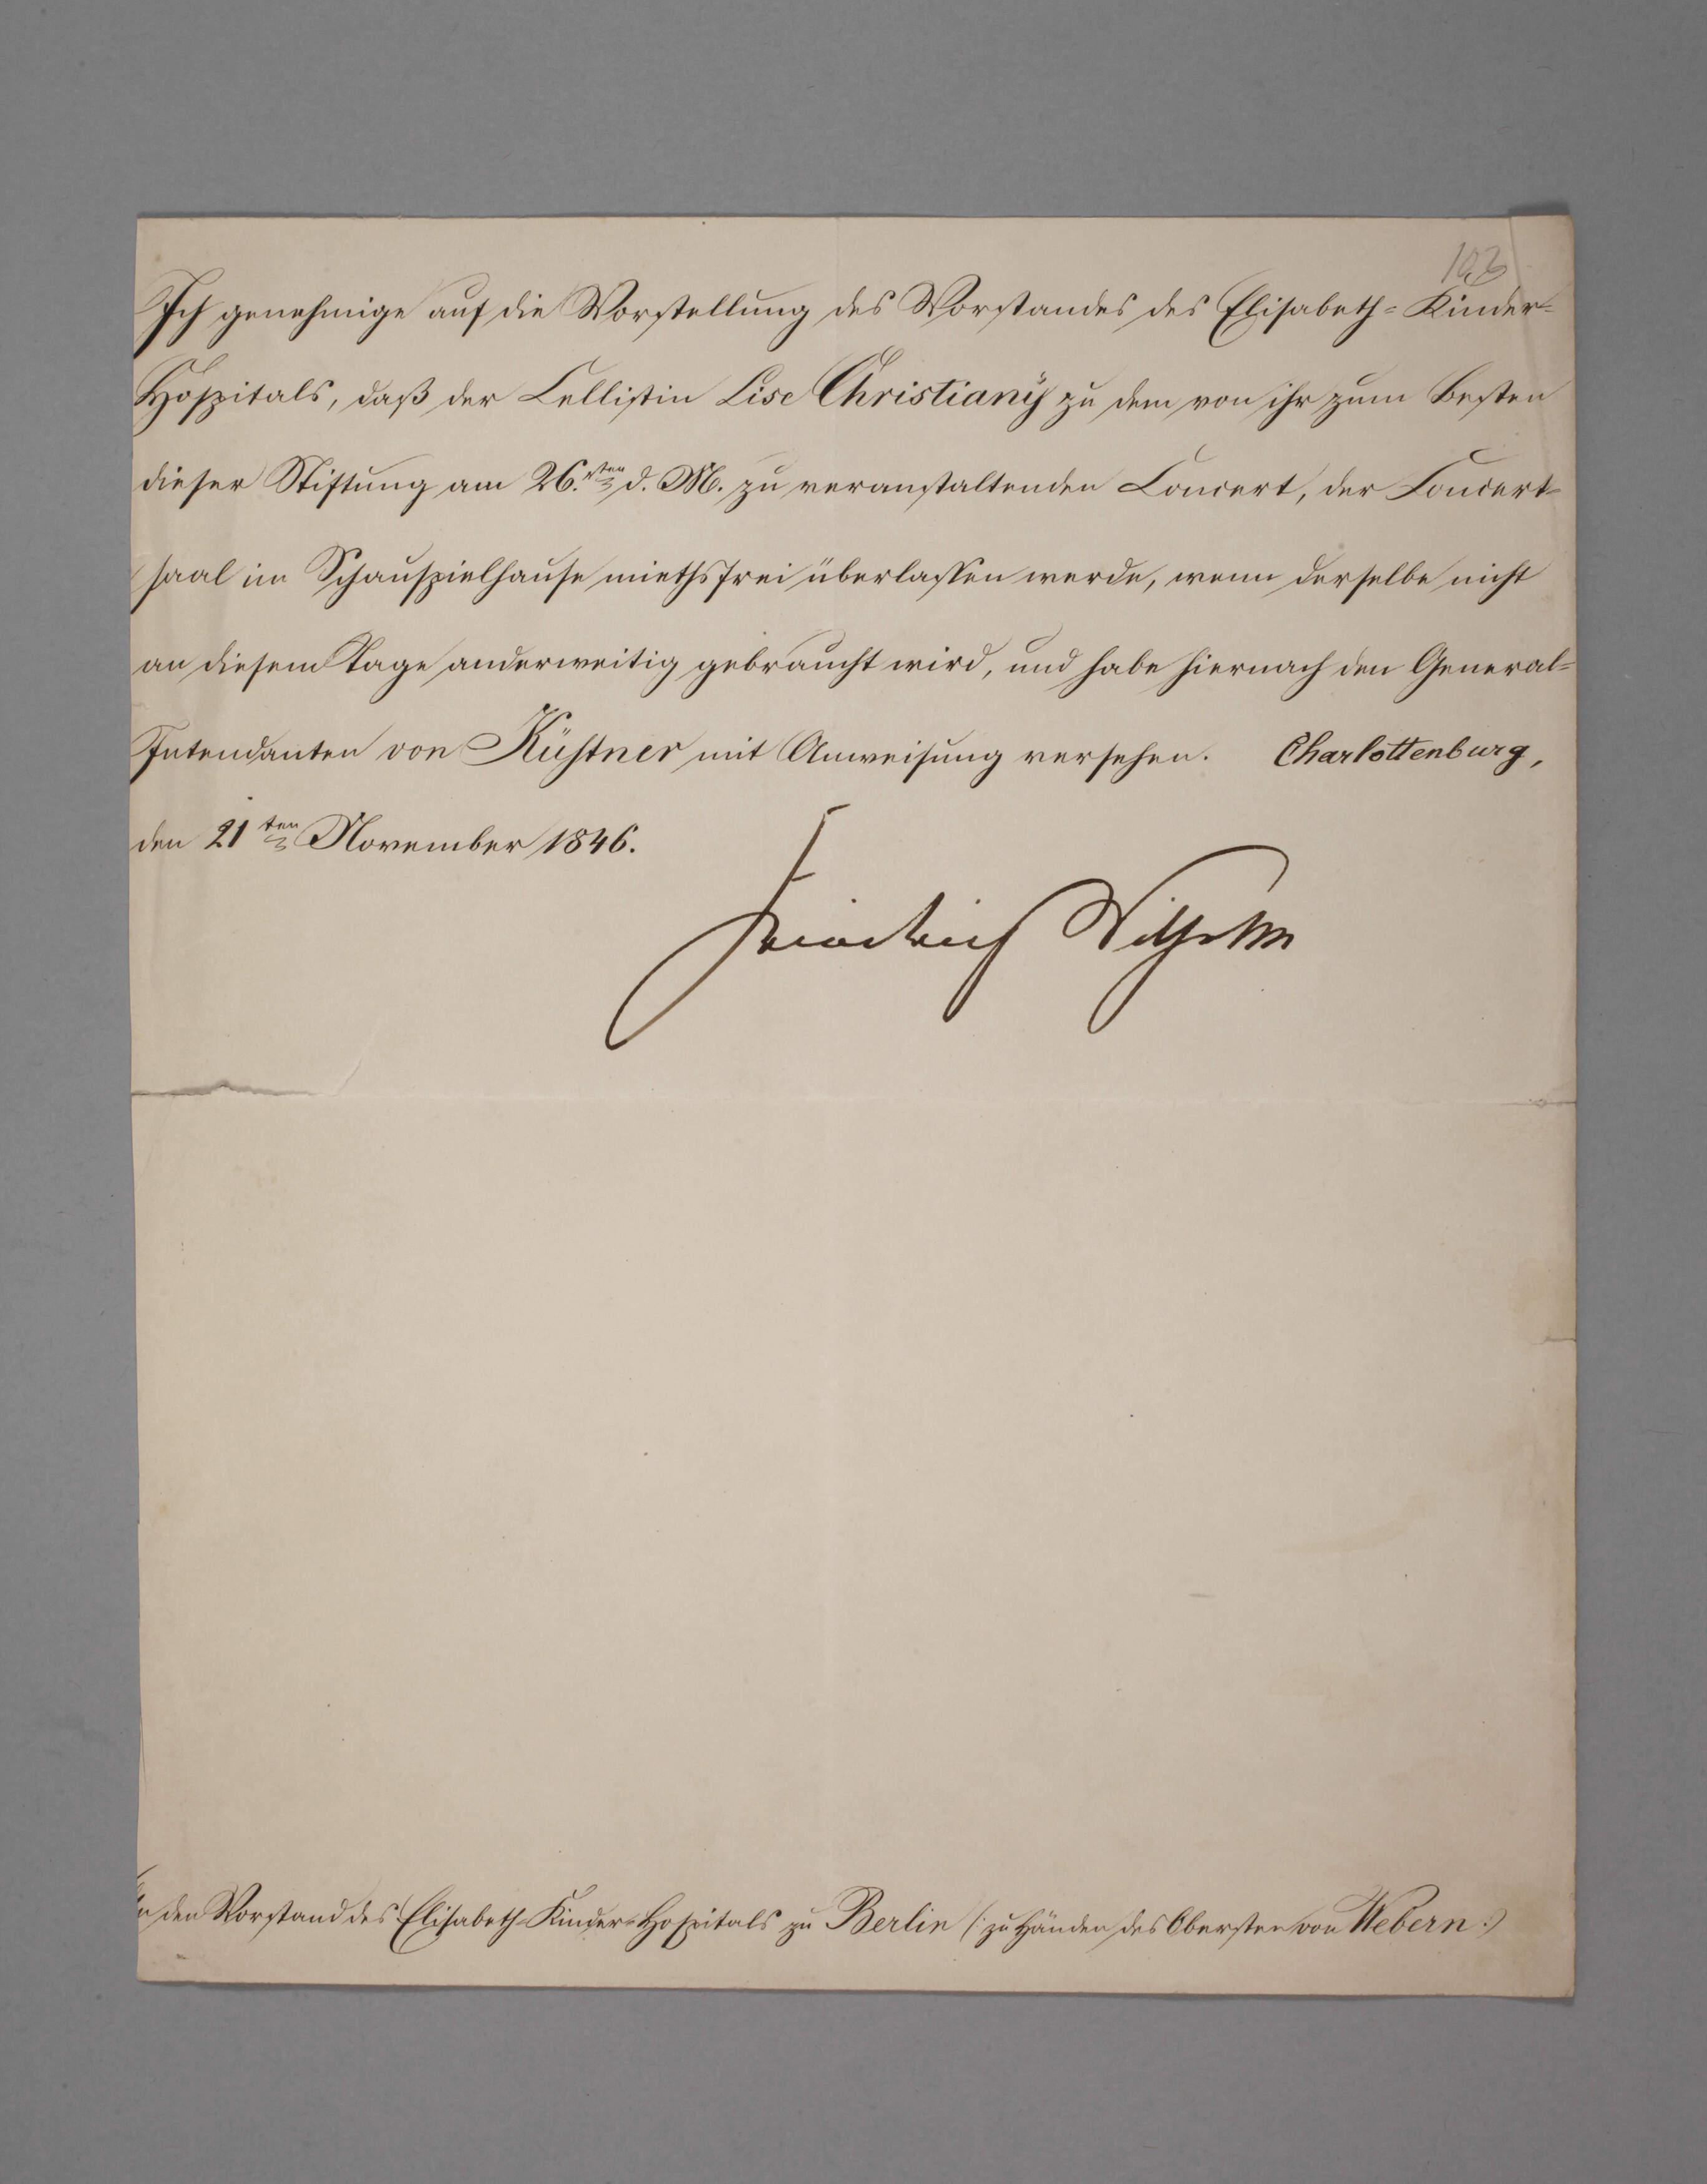 103
Ich genehmige auf die Vorstellung des Vorstandes des Elisabeth-Kinder-
Hospitals, daß der Cellistin Lise Christianÿ zu dem von ihr zum Besten
dieser Stiftung am 26.sten d. M. zu veranstaltenden Concert, der Concert-
saal im Schauspielhause miethsfrei überlassen werde, wenn derselbe nicht
an diesem Tage anderweitig gebraucht wird, und habe hiernach den General-
Intendanten von Küstner mit Anweisung versehen. Charlottenburg,
den 21ten November 1846.
Friedrich Wilhelm
An den Vorstand des Elisabeth-Kinder-Hospitals zu Berlin (: zu Händen des Obersten von Webern :)